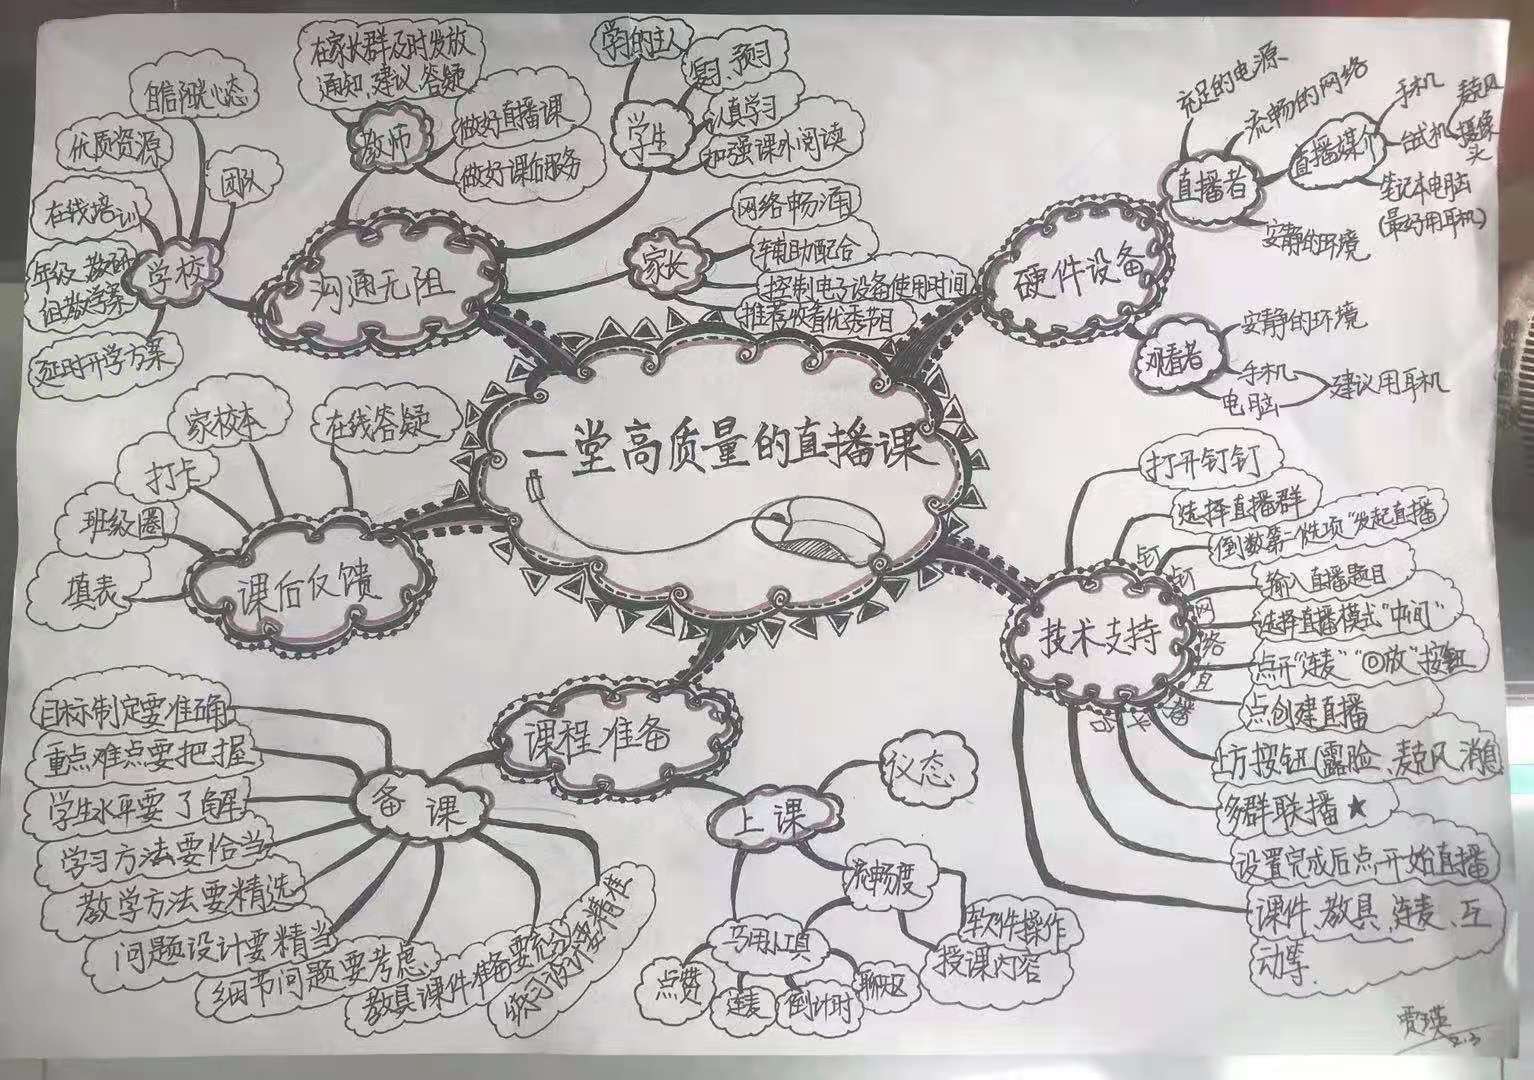 一堂高质量的直播课
沟通无阻
学校
自信阳光心态
优质资源
团队
在线培训
年级、教研
组教学案
延时开学方案
教师
在家长群及时发放
通知、建议、答疑
做好直播课
做好课后服务
学生
学的主人
复习、预习
认真学习
加强课外阅读
家长
网络畅通
辅助配合
控制电子设备使用时间
推荐收看优秀节目
硬件设备
直播者
充足的电源
流畅的网络
直播媒介
手机
台式机
麦克风
摄像
头
笔记本电脑
(最好用耳机)
安静的环境
观看者
安静的环境
手机
电脑
建议用耳机
技术支持
钉钉网络直播
打开钉钉
选择直播群
倒数第一个选项"发起直播
输入直播题目
选择直播模式"中间"
点开"连麦" "回放"按钮
点创建直播
上方按钮(露脸、麦克风、消息
多群联播★
设置完成后点开始直播
课件、教具、连麦、互
动等.
课程准备
备课
目标制定要准确
重点难点要把握
学生水平要了解
学习方法要恰当
教学方法要精选
问题设计要精当
细节问题要考虑
教具课件准备要充分
上课
仪态
流畅度
软件操作
授课内容
巧用小工具
点赞
连麦
倒计时
聊天区
课后反馈
在线答疑
家校本
打卡
班级圈
填表
贾瑛
2.3